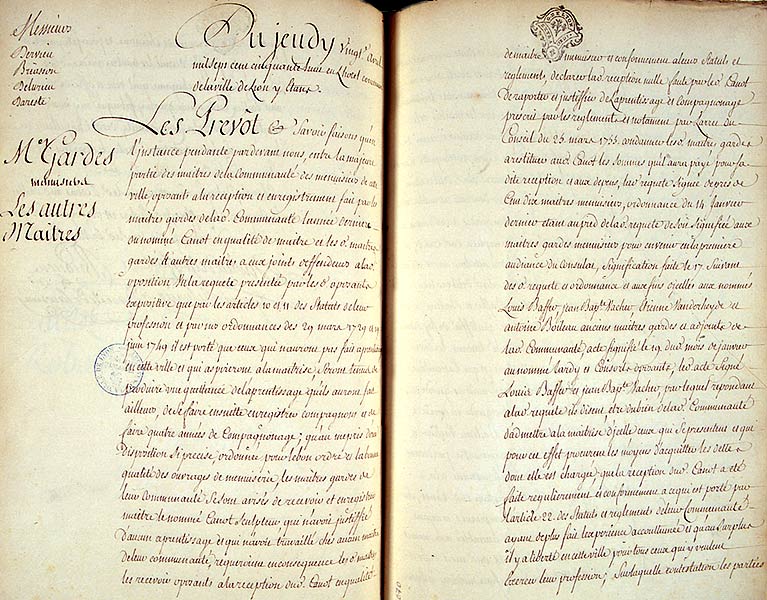 Messieurs
Dervieu
Briasson
Deluvieu
Bareste
Mes Gardes
menuisiers
Les autres
Maitres
Du jeudy vingt avril
mil sept cent cinquante huit en L'hotel commun
de la ville de Lion y Etans
Les Prevôt & Savoir faisons qu'en
l'instance pendante pardevant nous, entre la majeure
partie des maitres de la Communauté des menuisiers de cette
ville oposants a la reception et enregistrement fait par les
maitre gardes de lad. Communauté l'année derniere
du nommé Canot en qualité de maitre et les srs maitres
gardes et autres maitres a eux joints deffendeurs a lad.
oposition Vu la requete presentée par les d. oposants
Expositive que par les articles 10 et 11 des Statuts de leur
profession et par nos ordonnances des 29 mars 1729 et 11
juin 1749 il est porté que ceux qui n'auront pas fait aprentissage
en cette ville et qui aspireront a la maitrise seront tenus de
produire une quittance de l'aprentissage qu'ils auront fait
ailleurs, de se faire ensuitte enregistrer compagnons et de
faire quatre années de Compagnonage; qu'au mepris d'une
disposition si precise, ordonnée pour le bon ordre et la bonne
qualité des ouvrages de menuiserie, les maitres gardes de
leur communauté se sont avisés de recevoir et enregistrer
maitre le nommé Canot sculpteur qui n'avoit justiffié
d'aucun aprentissage et qui n'avoit travaillé chés aucun maitre
de leur communauté, requeroient en consequence les d. maitres
les recevoir oposants a la reception dud. Canot en qualité
de maitre menuisier et conformement a leurs Statuts et
reglement, declarer lad. reception nulle faute par led. Canot
de raporter et justiffier de l'aprentissage et compagnonage
prescrit par les reglements et notament par l'arret du
Conseil du 25 mars 1755. condamner les d. maitres gardes
a restituer aud. Canot les sommes qu'il aura payé pour sa
dite reception et aux depens, lad. requete signée de pres de
Cent dix maitres menuisiers, ordonnance du 14 Janvier
dernier etant au pied de lad. requete de soit signiffiée aux
maitres gardes menuisiers pour en venir en la premiere
audiance du consulat, Signification faite le 17. suivant
des d. requete et ordonnance et aux fins d'icelles aux nommés
Louis Baffer, jean Bapte. Vacher, Etienne Vanderheyde et
antoine Boileau anciens maitres gardes et adjoints de
lad. Communauté, acte signiffié le 19. du d. mois de janvier
au nommé Lardy et Consorts oposants, led. acte Signé
Louis Baffer et jean Bapte. Vacher, par lequel repondant
a lad. requete ils disent etre du bien de lad. Communauté
d'admettre a la maitrise d'icelle ceux qui se presentent et qui
peuvent en effet procurer les moyens d'acquitter les dettes
dont elle est chargée, que la reception dud. Canot a été
faite regulierement et conformement a ce qui est porté par
l'article 22. des Statuts et reglement de leur Communauté
ayant de plus fait l'experience accoutumée et qu'au surplus
il y a liberté en cette ville pour tous ceux qui y veulent
Exercer leur profession; sur laquelle contestation les parties